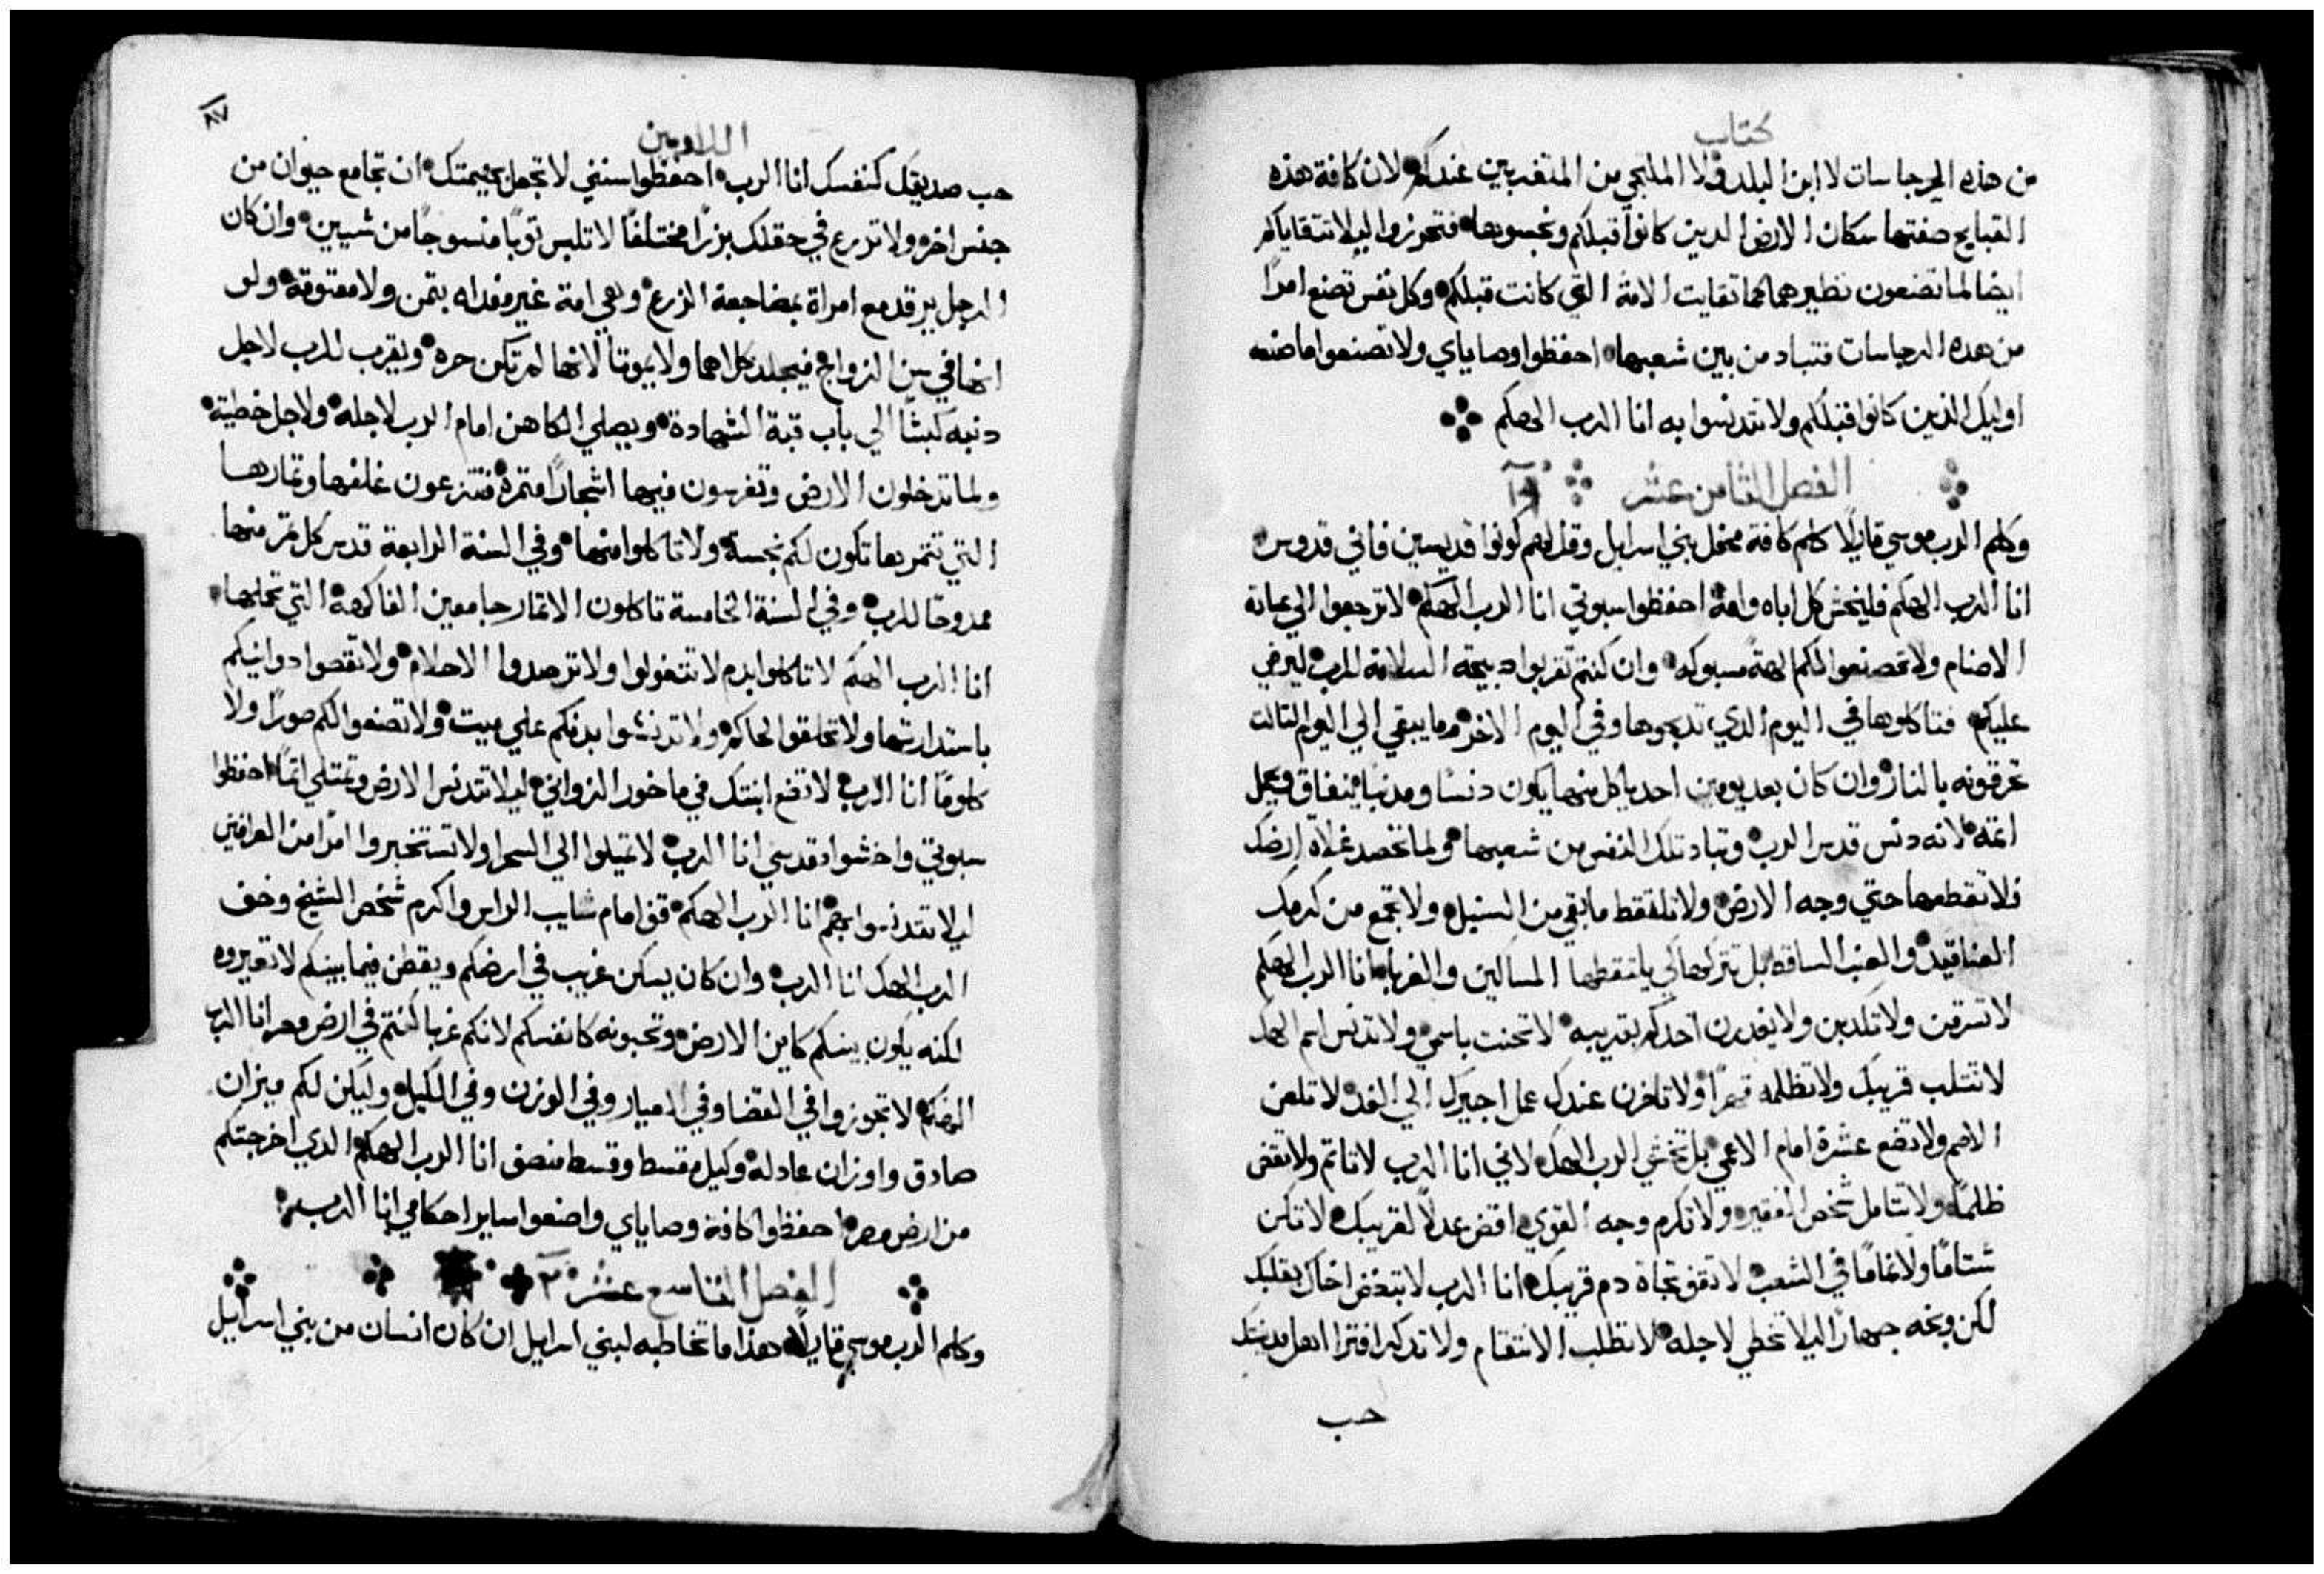 كتاب
من هذه الرجاسات لا ابن البلد ولا الملتجي من المتغربين عندكم لان كافة هذه
القبايح صنعتها سكان الارض الدين كانوا قبلكم ونجسوها فتحرزوا ليلا تتقاياكم
ايضا لما تصنعون نظيرهما كما تقايت الامة التي كانت قبلكم وكل نفس تصنع امرا
من هده الرجاسات فتباد من بين شعبها احفظوا وصاياي ولا تصنعوا ما صنعه
اوليك الذين كانوا قبلكم ولا تتدنسوا به انا الرب الهكم
الفصل الثامن عشر
وكلم الرب موسي قايلا كلم كافة محفل بني اسرايل وقل لهم كونوا قديسين فاني قدوس
انا الرب الهكم فليخش كل اباه وامه احفظوا سبوتي انا الرب الهكم لا ترجعوا الي عبادة
الاصنام ولا تصنعوا لكم الهة مسبوكه وان كنتم تقربوا دبيحة السلامة للرب ليرضي
عليكم فتاكلوها في اليوم الدي تدبحوها وفي اليوم الاخر وما يبقي الي اليوم التالت
تحرقونه بالنار وان كان بعد يومين احد ياكل منها يكون دنسا ومدنبا بنفاق ويحمل
اتمه لانه دنس قدس الرب وتباد تلك النفس من شعبها ولما تحصد غلاة ارضك
فلا تقطعها حتي وجه الارض ولا تلقط ما بقي من السنبل ولا تجمع من كرمك
العناقيد والعنب الساقط بل تتركها كي يلتقطها المساكين والغربا انا الرب الهكم
لا تسرقن ولا تكدبن ولا يغدرن احدكم بقريبه لا تحنت باسمي ولا تدنس اسم الهك
لا تتلب قريبك ولا تظلمه قهرا ولا تاخرن عندك عمل اجيرك الي الغد لا تلعن
الاصم ولا تضع عشرة امام الاعمي بل تخشي الرب الهك لاني انا الرب لا تاتم ولا تقض
ظلما ولا تتامل شخص الفقير ولا تكرم وجه القوي اقض عدلا لقريبك لا تكن
شتاما ولا نماما في الشعب لا تقف تجاة دم قريبك انا الرب لا تبغض اخاك بقلبك
لكن وبخه جهارا ليلا تخطي لاجله لا تطلب الانتقام ولا تدكر افترا اهل مدينتك
حب
٨٧
اللاويين
حب صديقك كنفسك انا الرب احفظوا سنني لا تجعل بهيمتك ان تجامع حيوان من
جنس اخر ولا تزرع في حقلك بزرا مختلفا لا تلبس توبا منسوجا من شيين وان كان
الرجل يرقد مع امراة بمضاجعة الزرع وهي امة غير مفداه بتمن ولا معتوقة ولو
انها في سن الزواج فيجلد كلاهما ولا يموتا لانها لم تكن حره ويقرب للرب لاجل
دنبه كبشا الي باب قبة الشهادة ويصلي الكاهن امام الرب لاجله ولاجل خطيته
ولما تدخلون الارض وتغرسون فيها اشجارا متمرة فتنزعون غلفها وتمارها
التي تتمر بها تكون لكم نجسة ولا تاكلوا منها وفي السنة الرابعة قدس كل تمر منها
ممدوحا للرب وفي السنة الخامسة تاكلون الاتمار جامعين الفاكهة التي تحملها
انا الرب الهكم لا تاكلوا بدم لا تتفولوا ولا ترصدوا الاحلام ولا تقصوا دوانيكم
باستدارتها ولا تحلقوا لحاكم ولا تدنشوا بدنكم علي ميت ولا تصنعوا لكم صورا ولا
كلوما انا الرب لا تضع ابنتك في ماخور الزواني ليلا تتدنس الارض وتمتلي اتما احفظوا
سبوتي واخشوا قدسي انا الرب لا تميلوا الي السحرا ولا تستخبروا امرا من العرافين
ليلا تتدنسوا بهم انا الرب الهكم قف امام شايب الراس واكرم شخص الشيخ وخف
الرب الهك انا الرب وان كان يسكن غريب في ارضكم ويقطن فيما بينكم لا تعيروه
لكنه يكون بينكم كابن الارض وتحبونه كانفسكم لانكم غربا كنتم في ارض مصر انا الرب
الهكم لا تجوزوا في القضا وفي المعيار وفي الوزن وفي الكيل وليكن لكم ميزان
صادق واوزان عادلة وكيل مقسط وقسط منصف انا الرب الهكم الدي اخرجتكم
من ارض مصر احفظوا كافة وصاياي واصنعوا ساير احكامي انا الرب
الفصل التاسع عشر
وكلم الرب موسي قايلا هذا ما تخاطبه لبني اسرايل ان كان انسان من بني اسرايل